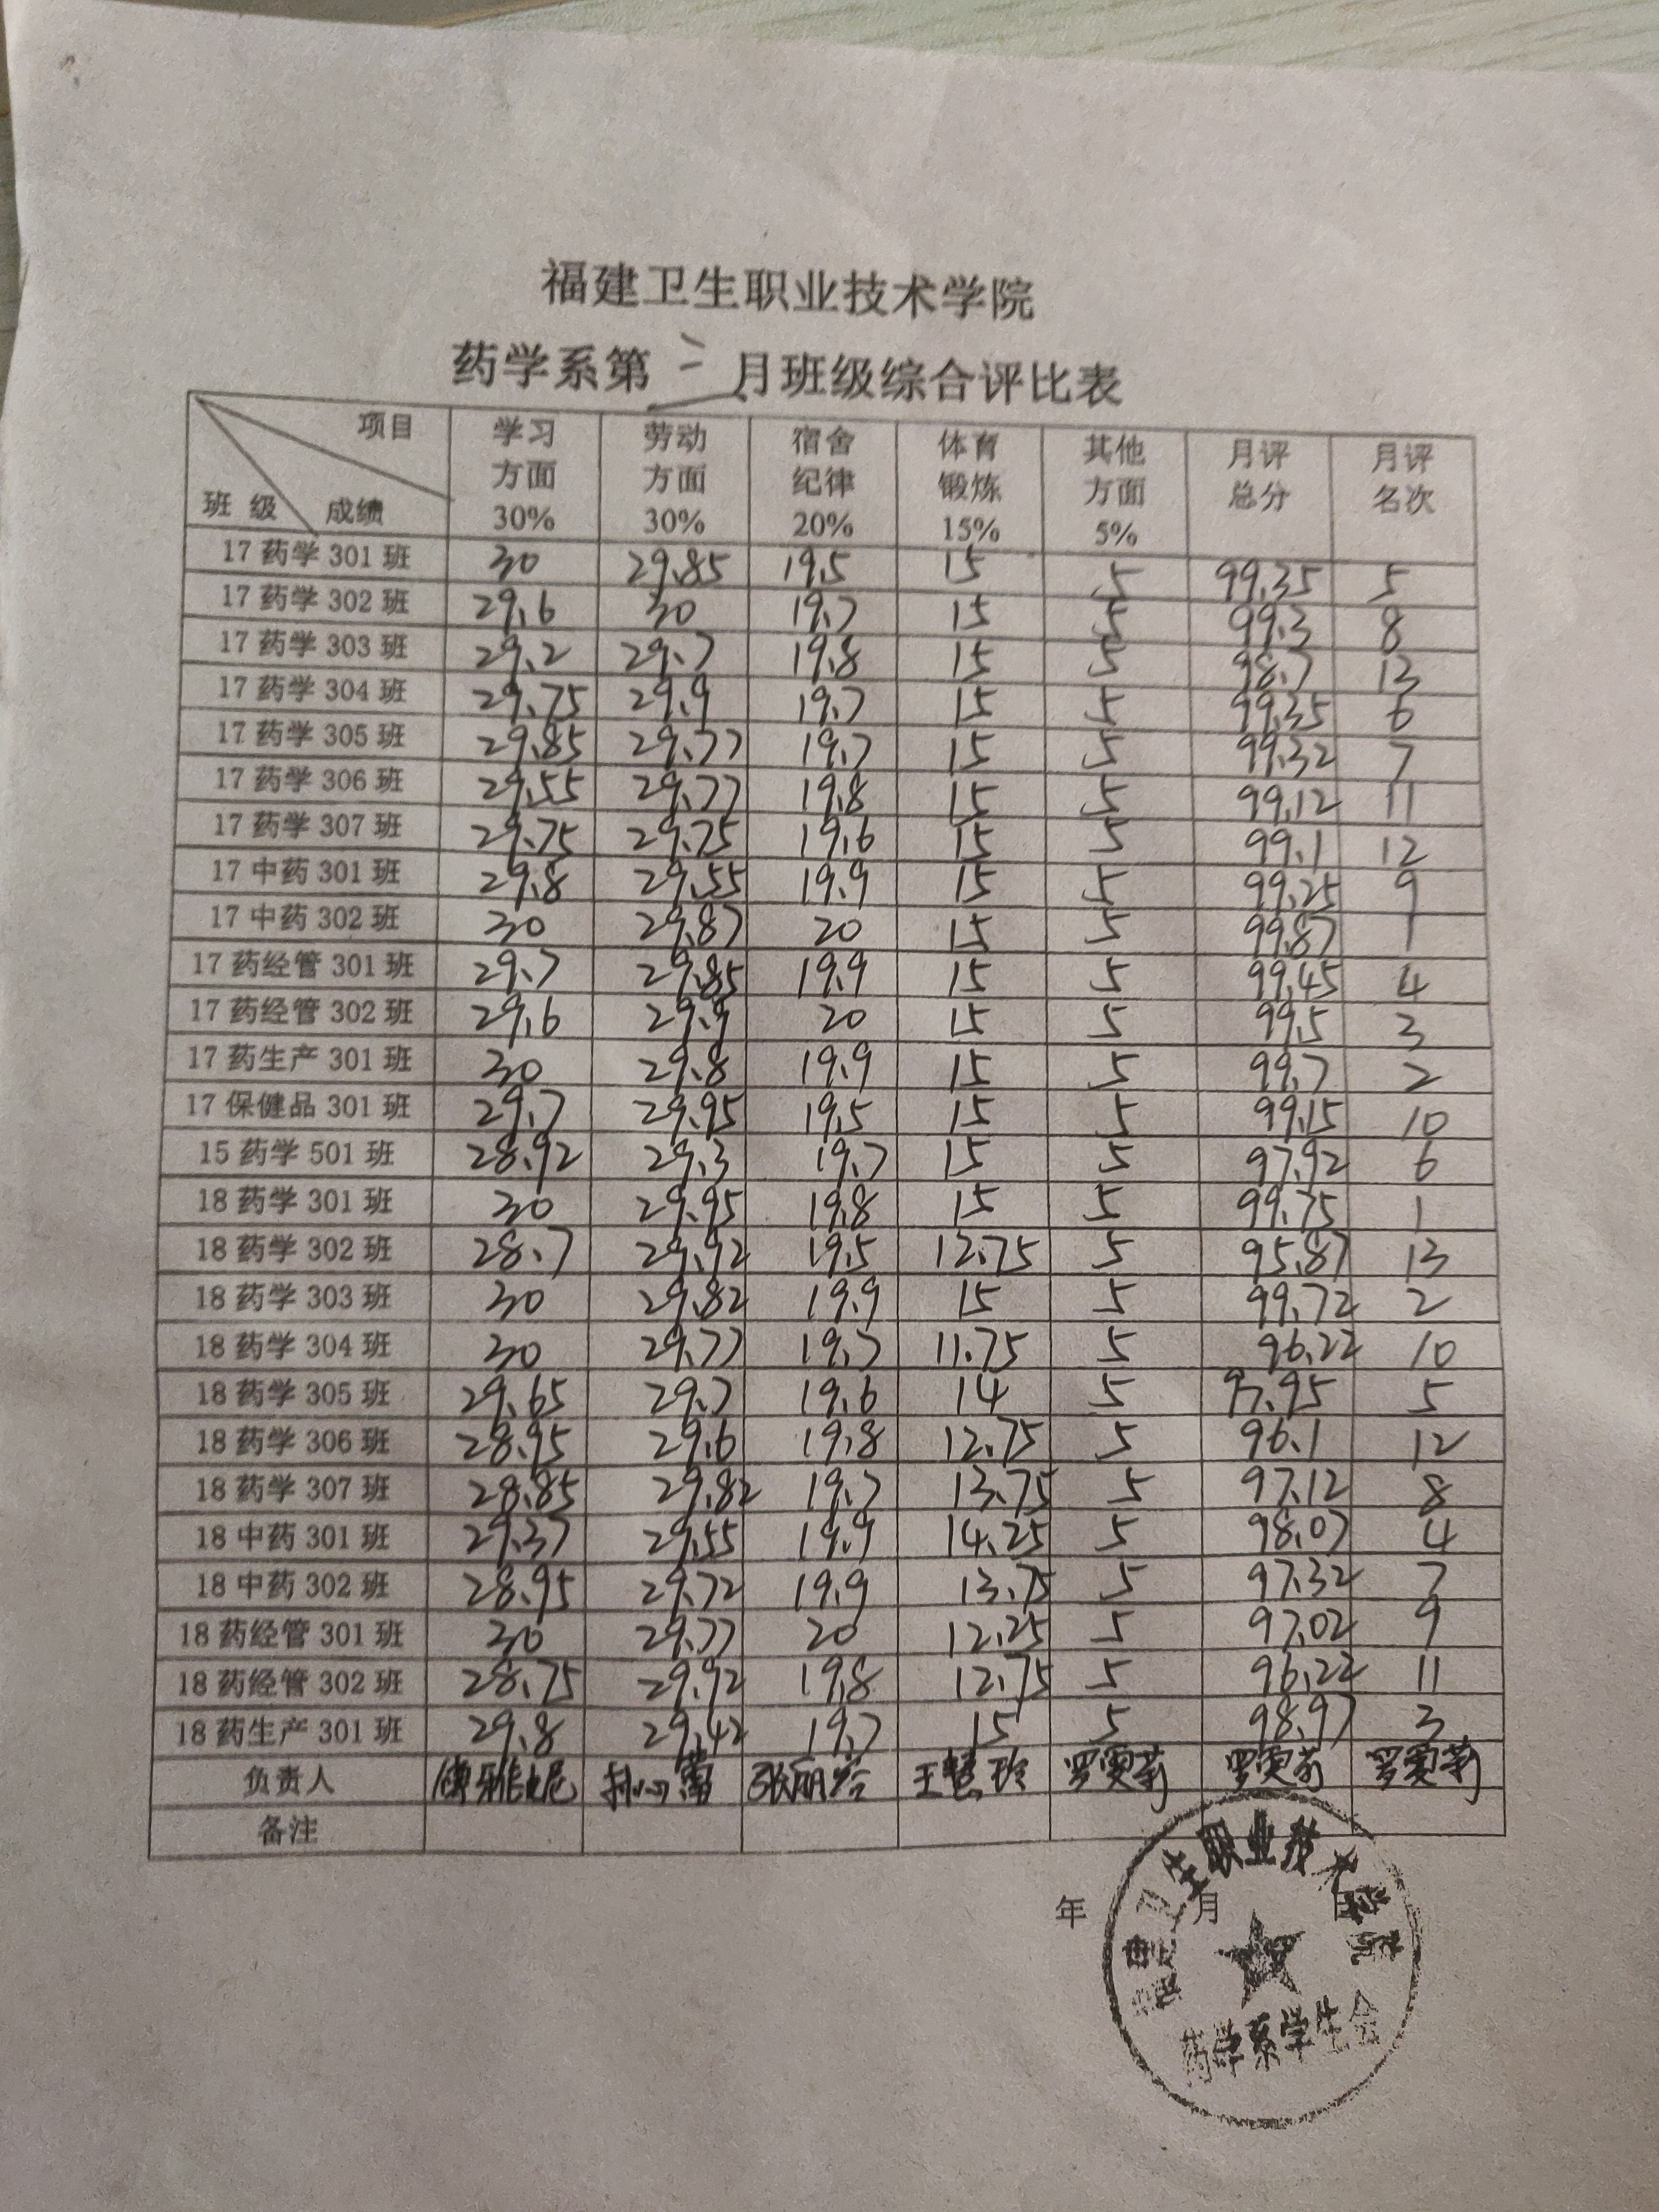 福建卫生职业技术学院
药学系第三月班级综合评比表
项目 班级 成绩 学习方面30% 劳动方面30% 宿舍纪律20% 体育锻炼15% 其他方面5% 月评总分 月评名次
17药学301班 30 29.85 19.5 15 5 99.35 5
17药学302班 29.6 30 19.7 15 5 99.3 8
17药学303班 29.2 29.7 19.8 15 5 98.7 13
17药学304班 29.75 29.9 19.7 15 5 99.35 6
17药学305班 29.85 29.77 19.7 15 5 99.32 7
17药学306班 29.55 29.77 19.8 15 5 99.12 11
17药学307班 29.75 29.75 19.6 15 5 99.1 12
17中药301班 29.8 29.55 19.9 15 5 99.25 9
17中药302班 30 29.87 20 15 5 99.87 1
17药经管301班 29.7 29.85 19.9 15 5 99.45 4
17药经管302班 29.6 29.9 20 15 5 99.5 3
17药生产301班 30 29.8 19.9 15 5 99.7 2
17保健品301班 29.7 29.95 19.5 15 5 99.15 10
15药学501班 28.92 29.3 19.7 15 5 97.92 6
18药学301班 30 29.95 19.8 15 5 99.75 1
18药学302班 28.7 29.92 19.5 12.75 5 95.87 13
18药学303班 30 29.82 19.9 15 5 99.72 2
18药学304班 30 29.77 19.7 11.75 5 96.22 10
18药学305班 29.65 29.7 19.6 14 5 97.95 5
18药学306班 28.95 29.6 19.8 12.75 5 96.1 12
18药学307班 28.85 29.82 19.7 13.75 5 97.12 8
18中药301班 29.37 29.55 19.9 14.25 5 98.07 4
18中药302班 28.95 29.72 19.9 13.75 5 97.32 7
18药经管301班 30 29.77 20 12.25 5 97.02 9
18药经管302班 28.75 29.92 19.8 12.75 5 96.22 11
18药生产301班 29.8 29.42 19.7 15 5 98.97 3
负责人 王慧玲
备注
年 月 日
福建卫生职业技术学院
药学系学生会